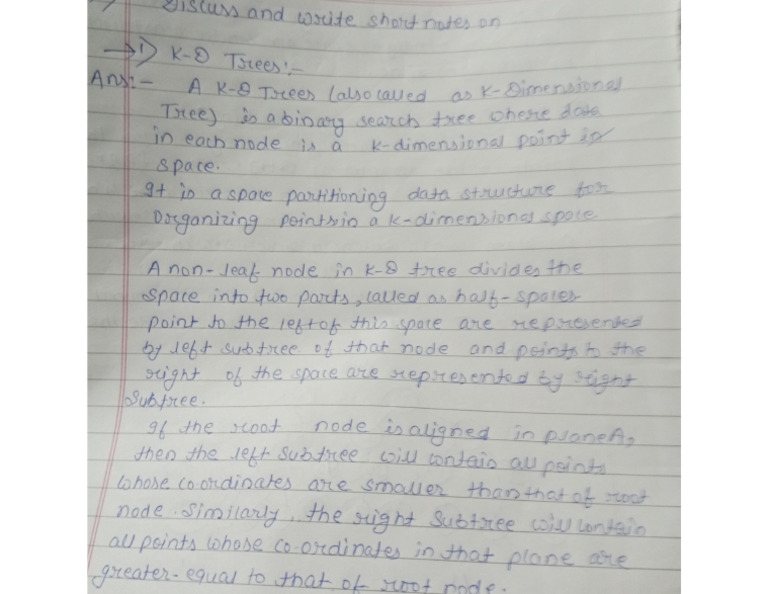 Discuss and write short notes on
→ 1) K-D Trees:-
Ans:- A K-D Trees (also called as K-Dimensional
Tree) is a binary search tree where data
in each node is a K-dimensional point in
space.
It is a space partitioning data structure for
Dorganizing points in a K-dimensional space
A non-leaf node in K-D tree divides the
space into two parts, called as half-spaces
point to the left of this space are represented
by left subtree of that node and points to the
right of the space are represented by right
Subtree.
If the root node is aligned in planeA,
then the left subtree will contain all points
whose coordinates are smaller than that of root
node. Similarly, the right Subtree will contain
all points whose co-ordinates in that plane are
greater-equal to that of root node.